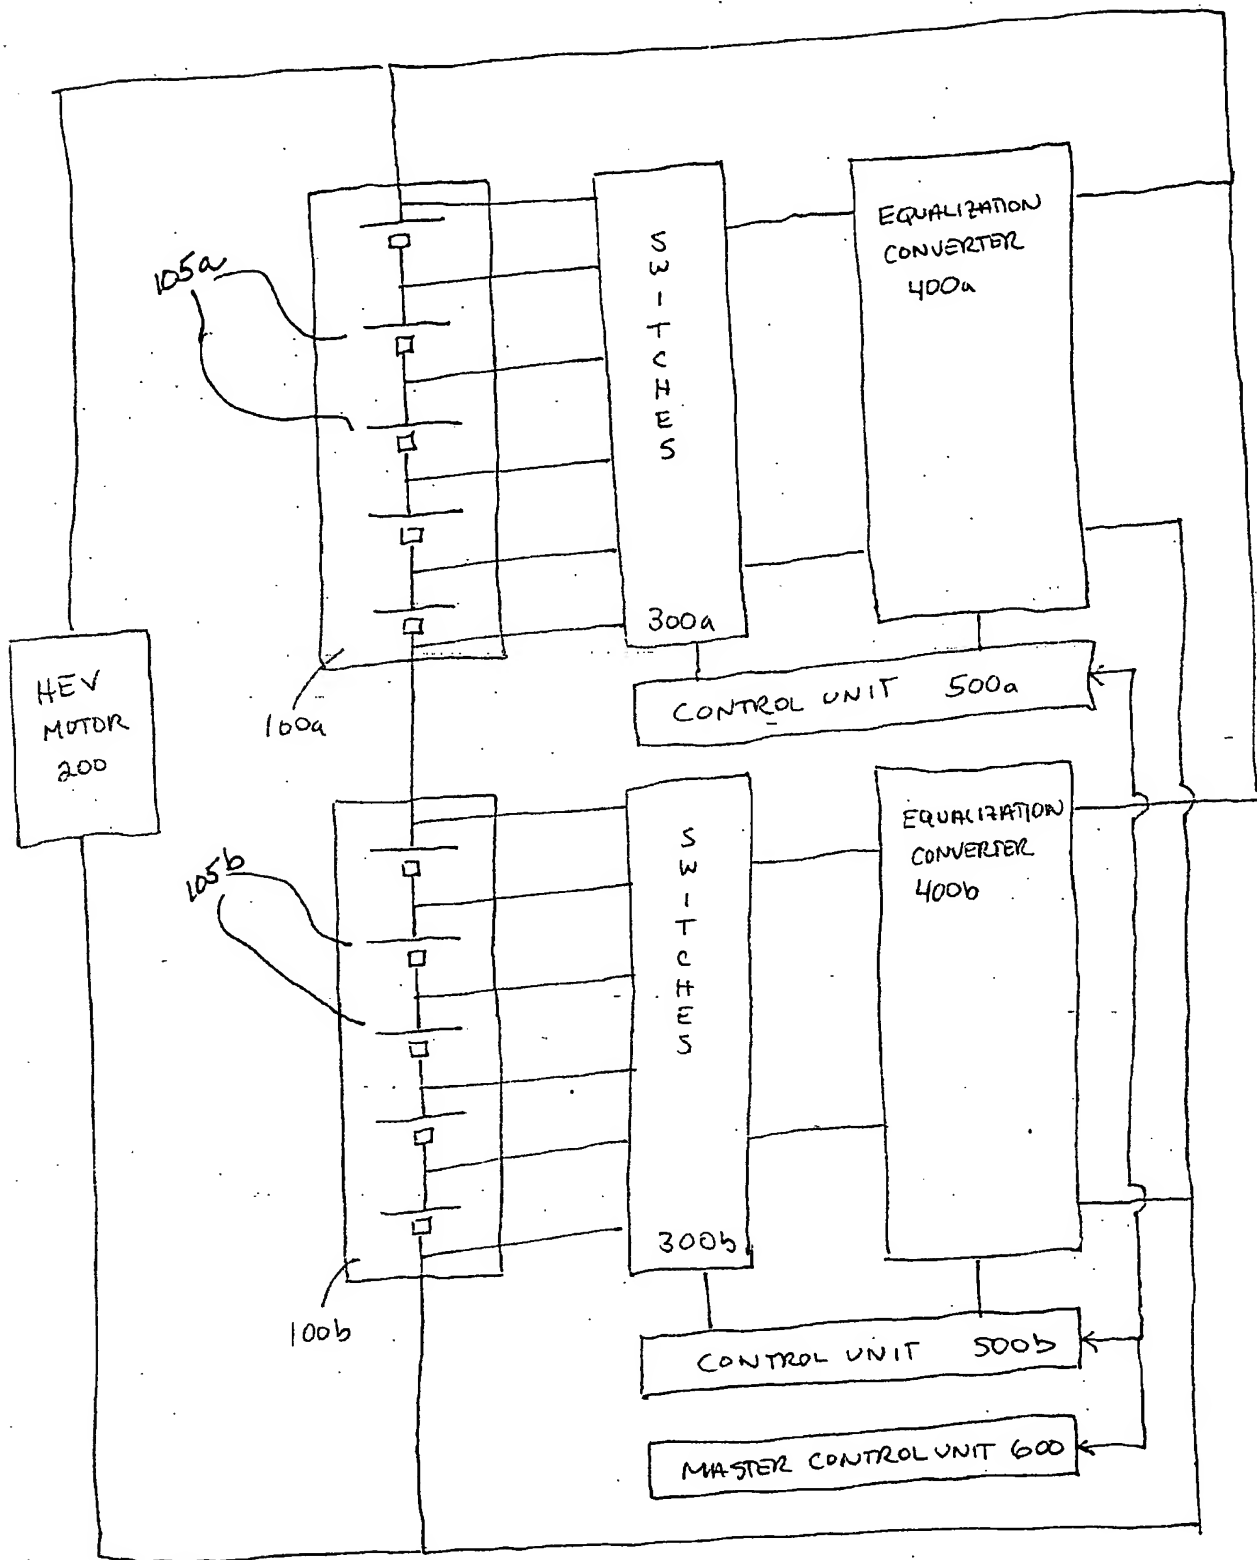 105a
SWITCHES
300a
EQUALIZATION
CONVERTER
400a
100a
CONTROL UNIT 500a
HEV
MOTOR
200
105b
SWITCHES
300b
EQUALIZATION
CONVERTER
400b
100b
CONTROL UNIT 500b
MASTER CONTROL UNIT 600